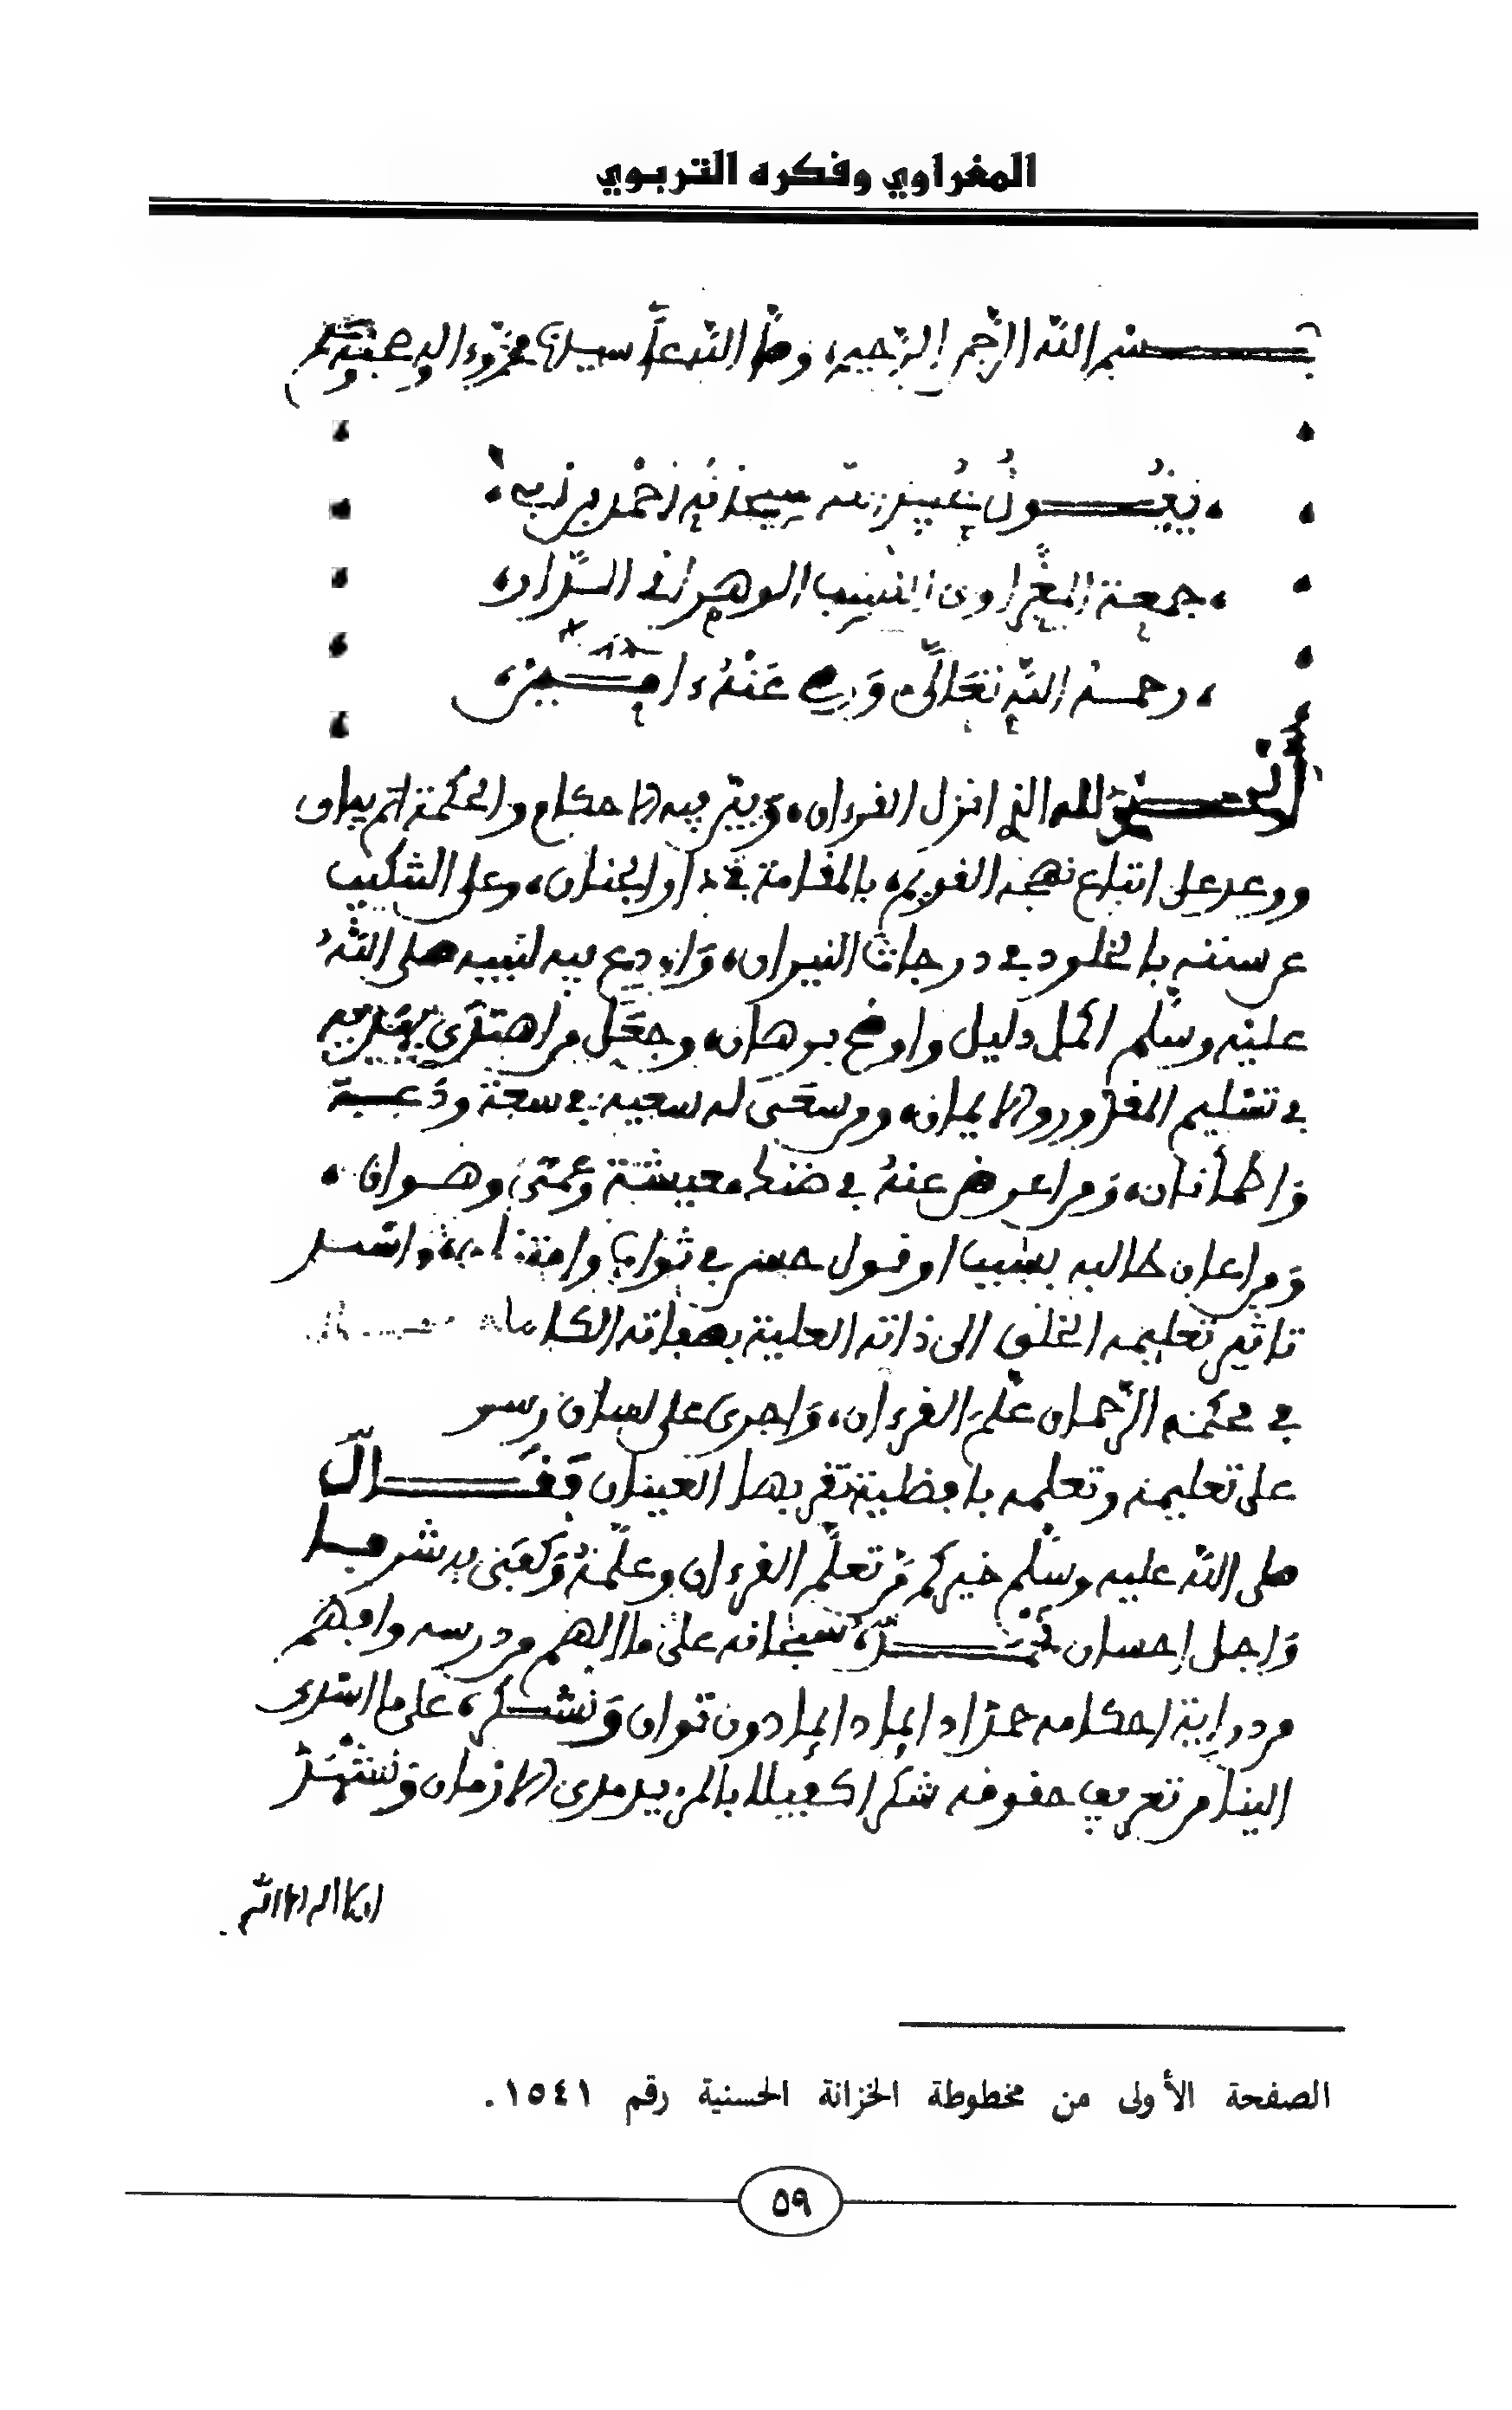 المغراوي وفكره التربوي
بسم الله الرحمن الرحيم وصلى الله على سيدنا محمد وءاله وصحبه وسلم
يقول عبيد الله سبحانه أحمد بن أبي
جمعة المغراوي النسب الوهراني الدار
رحمة الله تعالى ورضي عنه ءامين
الحمد لله الذي انزل القرءان، وبين فيه الاحكام والحكمة اتم بيان
ووعد على اتباع نهجه القويم، بالمقامة في دار الجنان، وعلى التنكيب
عن سننه بالخلود في دركات النيران، وأودع فيه لنبيه صلى الله
عليه وسلم اكمل دليل واوضح برهان، وجعل من اهتدى بهديه
في تسليم المقدور والايمان، ومن سعى له سعيه في سعة ودعة
واطمأنان، ومن اعرض عنه في ضنك معيشة وعمى وهوان،
ومن اعان طالبه بسبب او قول حسن في ثواب وامتنان، واسند
تاثير تعليمه الخلق الى ذاته العلية بصفاته
في محكمه الرحمان علم القرءان، وأجرى على لسان رسو
على تعليمه وتعلمه بافضلية تقر بها العينان فقال
صلى الله عليه وسلم خيركم من تعلم القرءان وعلمه وكفى به شرفا
واجل إحسان نحمده سبحانه على ما الهم من درسه وافهم
من دراية احكامه حمدا دائما دون توان ونشكره على ما اسدى
الينا من تعريف حقوقه شكرا كفيلا بالمزيد مدى الازمان ونشهد
ان لا اله الا الله
الصفحة الأولى من مخطوطة الخزانة الحسنية رقم ١٥٤١.
٥٩